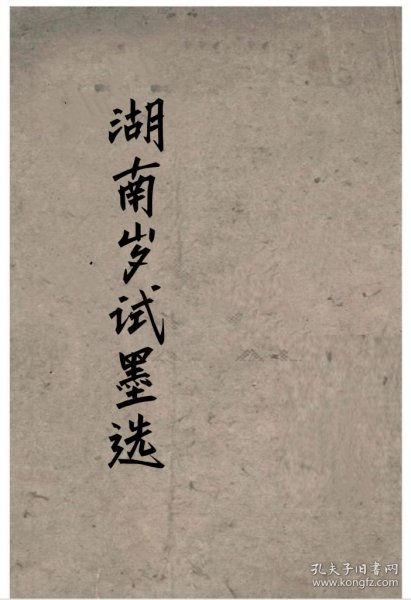 湖南岁试墨选
孔夫子旧书网
www.kongfz.com